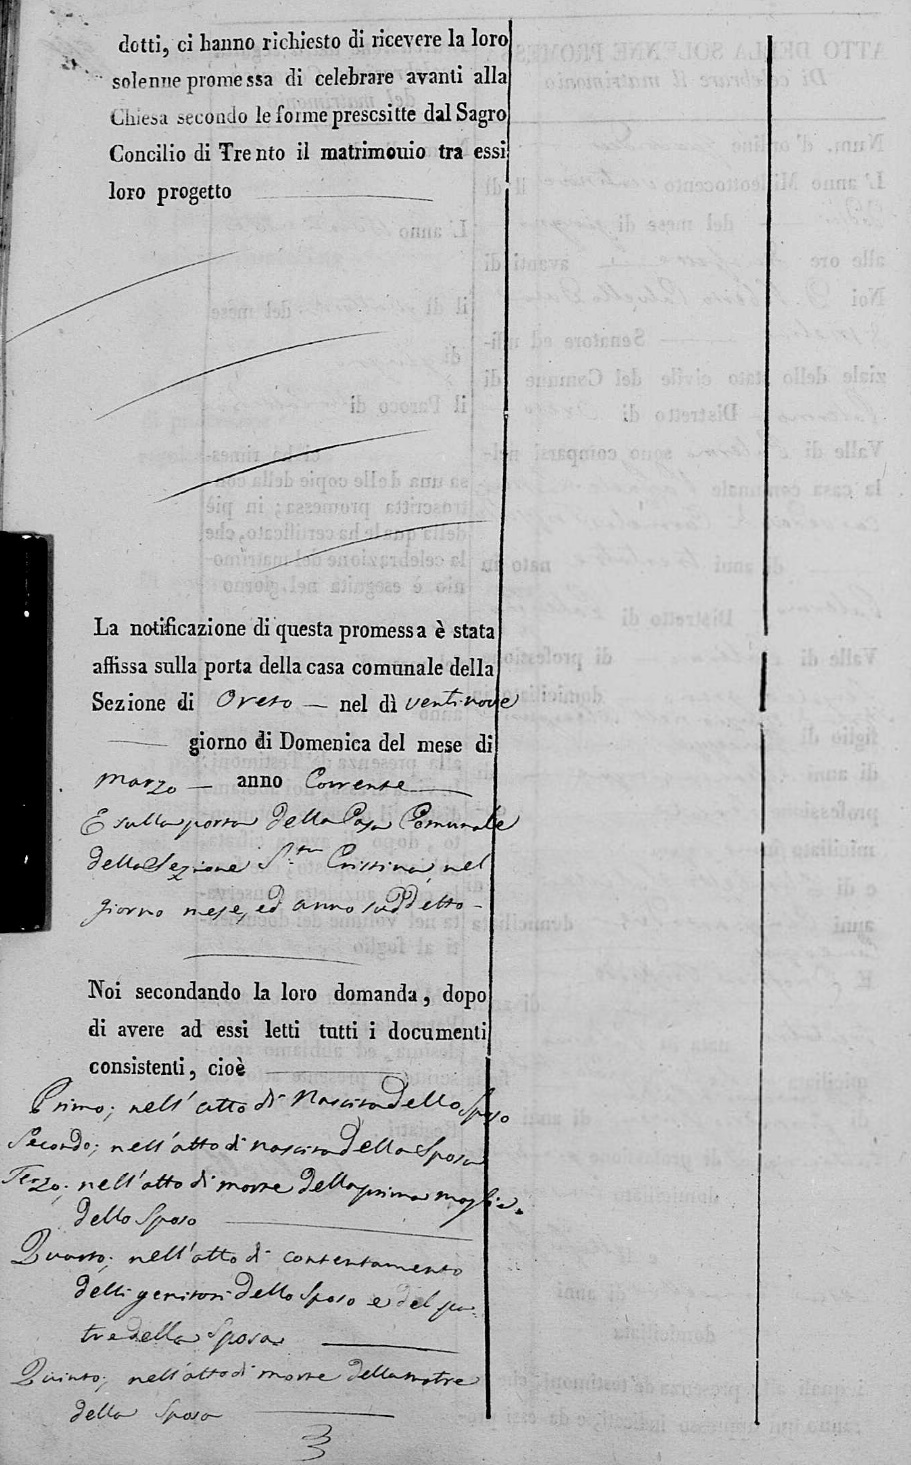 dotti, ci hanno richiesto di ricevere la loro
solenne promessa di celebrare avanti alla
Chiesa secondo le forme prescsitte dal Sagro
Concilio di Trento il matrimouio tra essi
loro progetto
La notificazione di questa promessa è stata
affissa sulla porta della casa comunale della
Sezione di Oreto — nel dì ventinove
giorno di Domenica del mese di
Marzo — anno Corrente
E sulla porta della Casa Comunale
della Sezione S.ta Cristina, nel
giorno mese, ed anno suddetto -
Noi secondando la loro domanda, dopo
di avere ad essi letti tutti i documenti
consistenti, cioè
Primo; nell'atto di nascita dello Sposo
Secondo; nell'atto di nascita della Sposa
Terzo; nell'atto di morte della prima moglie
dello Sposo
Quarto; nell'atto di contentamento
delli genitori dello Sposo e del pa-
tre della Sposa
Quinto; nell'atto di morte della matre
della Sposa